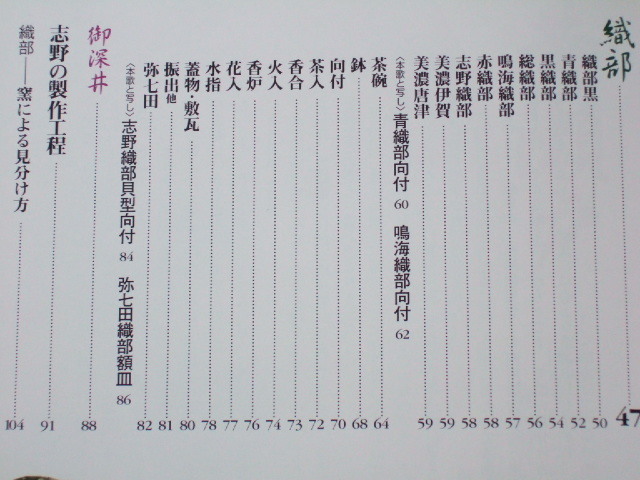 織部 47
織部黒 50
青織部 52
黒織部 54
総織部 56
鳴海織部 57
赤織部 58
志野織部 58
美濃伊賀 59
美濃唐津 59
〈本歌と写し〉青織部向付 60 鳴海織部向付 62
茶碗 64
鉢 68
向付 70
茶入 72
香合 73
火入 74
香炉 76
花入 77
水指 78
蓋物・敷瓦 80
振出他 81
弥七田 82
〈本歌と写し〉志野織部貝型向付 84 弥七田織部額皿 86
御深井 88
志野の製作工程 91
織部──窯による見分け方 104